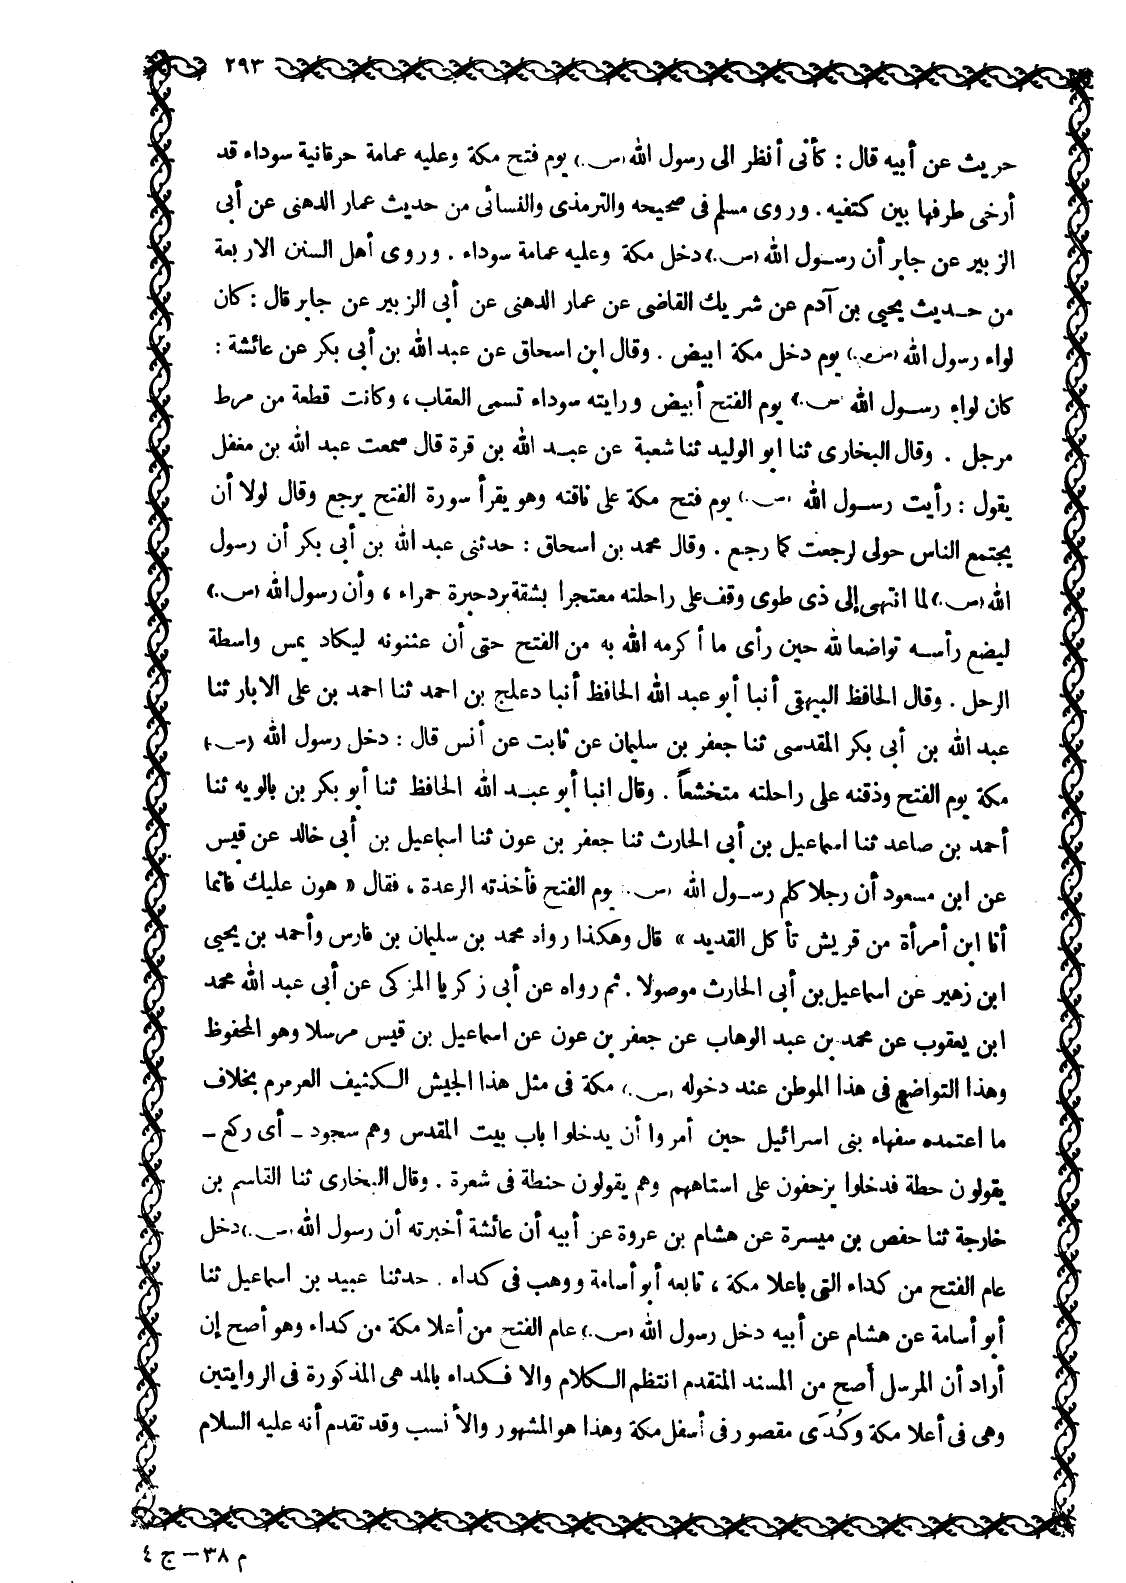 ٢٩٣
حريث عن أبيه قال : كأنى أنظر الى رسول الله (ص.) يوم فتح مكة وعليه عمامة حرقانية سوداء قد
أرخى طرفها بين كتفيه . وروى مسلم فى صحيحه والترمذى والنسائى من حديث عمار الدهنى عن أبى
الزبير عن جابر أن رسول الله (ص.) دخل مكة وعليه عمامة سوداء . وروى أهل السنن الاربعة
من حديث يحيى بن آدم عن شريك القاضى عن عمار الدهنى عن أبى الزبير عن جابر قال : كان
لواء رسول الله (ص.) يوم دخل مكة ابيض . وقال ابن اسحاق عن عبد الله بن أبى بكر عن عائشة :
كان لواء رسول الله (ص.) يوم الفتح أبيض ورايته سوداء تسمى العقاب ، وكانت قطعة من مرط
مرجل . وقال البخارى ثنا ابو الوليد ثنا شعبة عن عبد الله بن قرة قال سمعت عبد الله بن مغفل
يقول : رأيت رسول الله (ص.) يوم فتح مكة على ناقته وهو يقرأ سورة الفتح يرجع وقال لولا أن
يجتمع الناس حولى لرجعت كما رجع . وقال محمد بن اسحاق : حدثنى عبد الله بن أبى بكر أن رسول
الله (ص.) لما انتهى إلى ذى طوى وقف على راحلته معتجرا بشقة برد حبرة حمراء ، وأن رسول الله (ص.)
ليضع رأسه تواضعا لله حين رأى ما أكرمه الله به من الفتح حتى أن عثنونه ليكاد يمس واسطة
الرحل . وقال الحافظ البيهقى أنبا أبو عبد الله الحافظ أنبا دعلج بن احمد ثنا احمد بن على الابار ثنا
عبد الله بن أبى بكر المقدسى ثنا جعفر بن سليمان عن ثابت عن أنس قال : دخل رسول الله (ص.)
مكة يوم الفتح وذقنه على راحلته متخشعاً . وقال انبا أبو عبد الله الحافظ ثنا أبو بكر بن بالويه ثنا
أحمد بن صاعد ثنا اسماعيل بن أبى الحارث ثنا جعفر بن عون ثنا اسماعيل بن أبى خالد عن قيس
عن ابن مسعود أن رجلا كلم رسول الله (ص.) يوم الفتح فأخذته الرعدة ، فقال « هون عليك فانما
أنا ابن أمرأة من قريش تأكل القديد » قال وهكذا رواه محمد بن سليمان بن فارس وأحمد بن يحيى
ابن زهير عن اسماعيل بن أبى الحارث موصولا . ثم رواه عن أبى زكريا المزكى عن أبى عبد الله محمد
ابن يعقوب عن محمد بن عبد الوهاب عن جعفر بن عون عن اسماعيل بن قيس مرسلا وهو المحفوظ
وهذا التواضع فى هذا الموطن عند دخوله (ص.) مكة فى مثل هذا الجيش الكثيف العرمرم بخلاف
ما اعتمده سفهاء بنى اسرائيل حين أمروا أن يدخلوا باب بيت المقدس وهم سجود ــ أى ركع ــ
يقولون حطة فدخلوا يزحفون على استاههم وهم يقولون حنطة فى شعرة . وقال البخارى ثنا القاسم بن
خارجة ثنا حفص بن ميسرة عن هشام بن عروة عن أبيه أن عائشة أخبرته أن رسول الله (ص.) دخل
عام الفتح من كداء التى باعلا مكة ، تابعه أبو أسامة ووهب فى كداء . حدثنا عبيد بن اسماعيل ثنا
أبو أسامة عن هشام عن أبيه دخل رسول الله (ص.) عام الفتح من أعلا مكة من كداء وهو أصح إن
أراد أن المرسل أصح من المسند المتقدم انتظم الكلام والا فكداء بالمد هى المذكورة فى الروايتين
وهى فى أعلا مكة وكُدَى مقصور فى أسفل مكة وهذا هو المشهور والأنسب وقد تقدم أنه عليه السلام
م ٣٨ – ج ٤